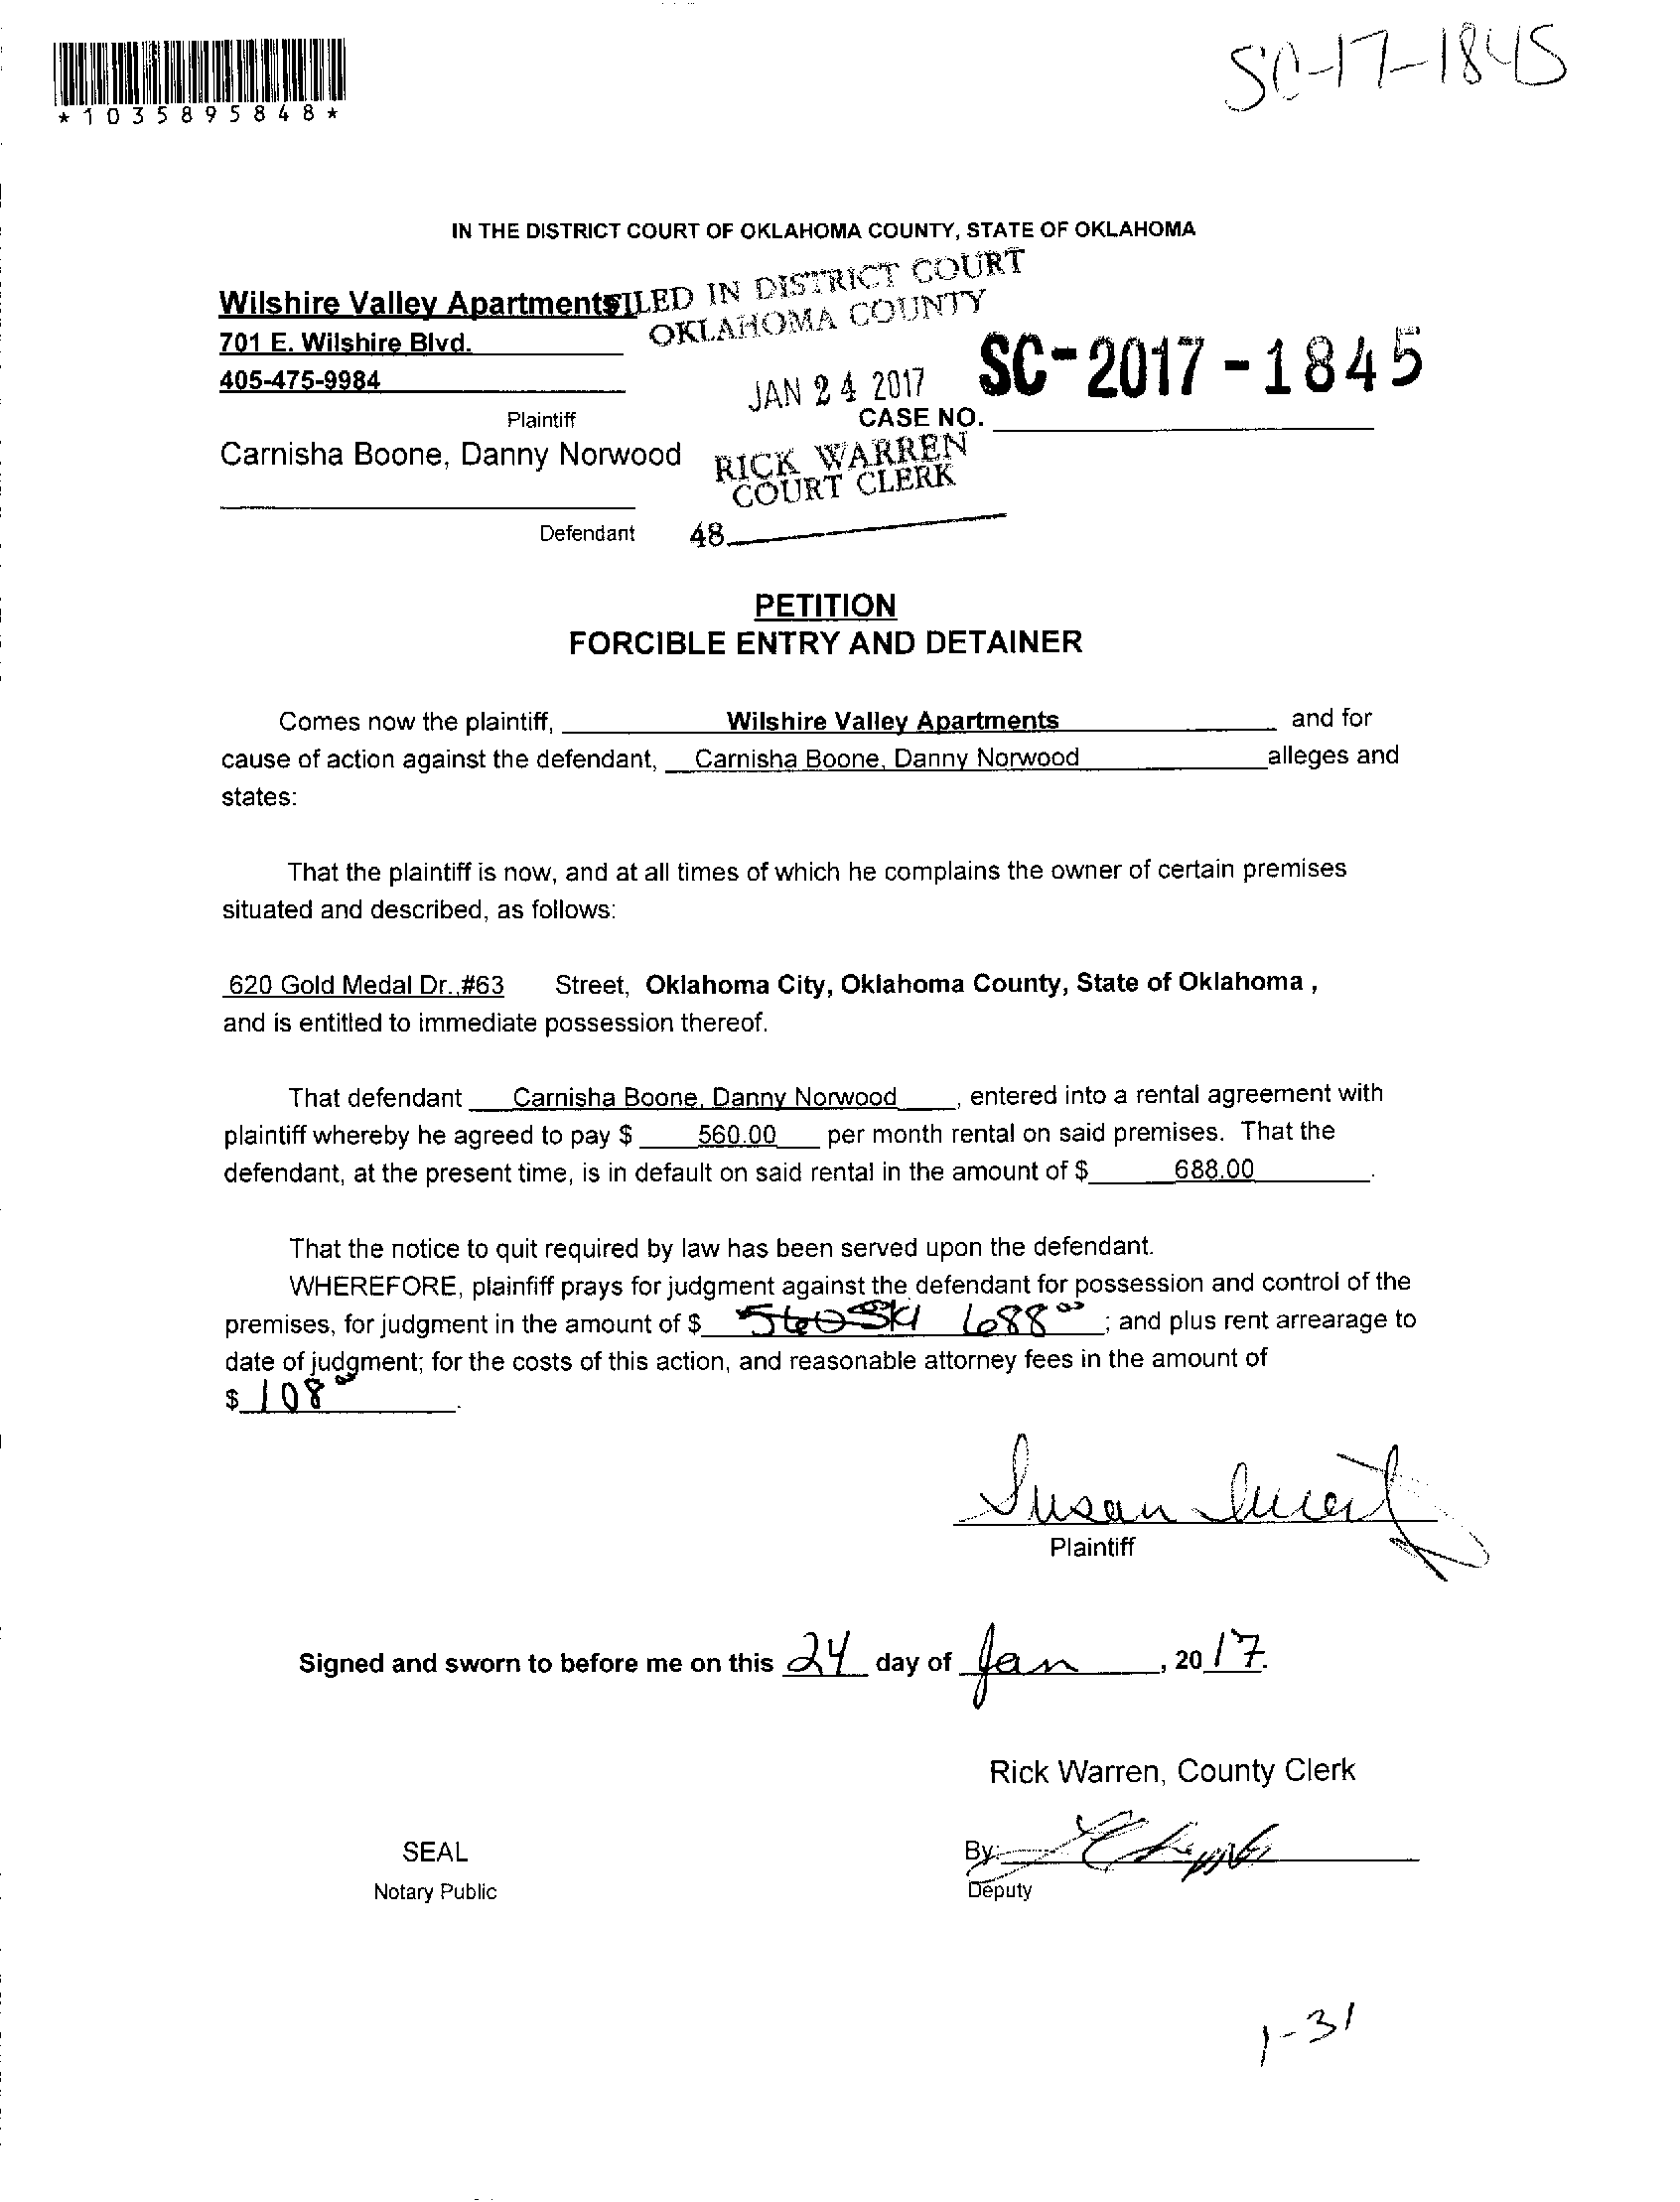 SC-17-1845
*1035895848*
IN THE DISTRICT COURT OF OKLAHOMA COUNTY, STATE OF OKLAHOMA
Wilshire Valley Apartments
FILED IN DISTRICT COURT
OKLAHOMA COUNTY
701 E. Wilshire Blvd.
405-475-9984
JAN 24 2017
SC-2017-1845
Plaintiff
CASE NO.
Carnisha Boone, Danny Norwood
RICK WARREN
COURT CLERK
Defendant
48
PETITION
FORCIBLE ENTRY AND DETAINER
Comes now the plaintiff, Wilshire Valley Apartments and for
cause of action against the defendant, Carnisha Boone, Danny Norwood alleges and
states:
That the plaintiff is now, and at all times of which he complains the owner of certain premises
situated and described, as follows:
620 Gold Medal Dr.,#63 Street, Oklahoma City, Oklahoma County, State of Oklahoma ,
and is entitled to immediate possession thereof.
That defendant Carnisha Boone, Danny Norwood , entered into a rental agreement with
plaintiff whereby he agreed to pay $ 560.00 per month rental on said premises. That the
defendant, at the present time, is in default on said rental in the amount of $ 688.00 .
That the notice to quit required by law has been served upon the defendant.
WHEREFORE, plainfiff prays for judgment against the defendant for possession and control of the
premises, for judgment in the amount of $ 688 00 ; and plus rent arrearage to
date of judgment; for the costs of this action, and reasonable attorney fees in the amount of
$ 108 00 .
Susan
Plaintiff
Signed and sworn to before me on this 24 day of Jan , 2017.
Rick Warren, County Clerk
SEAL
By:
Notary Public
Deputy
1-31